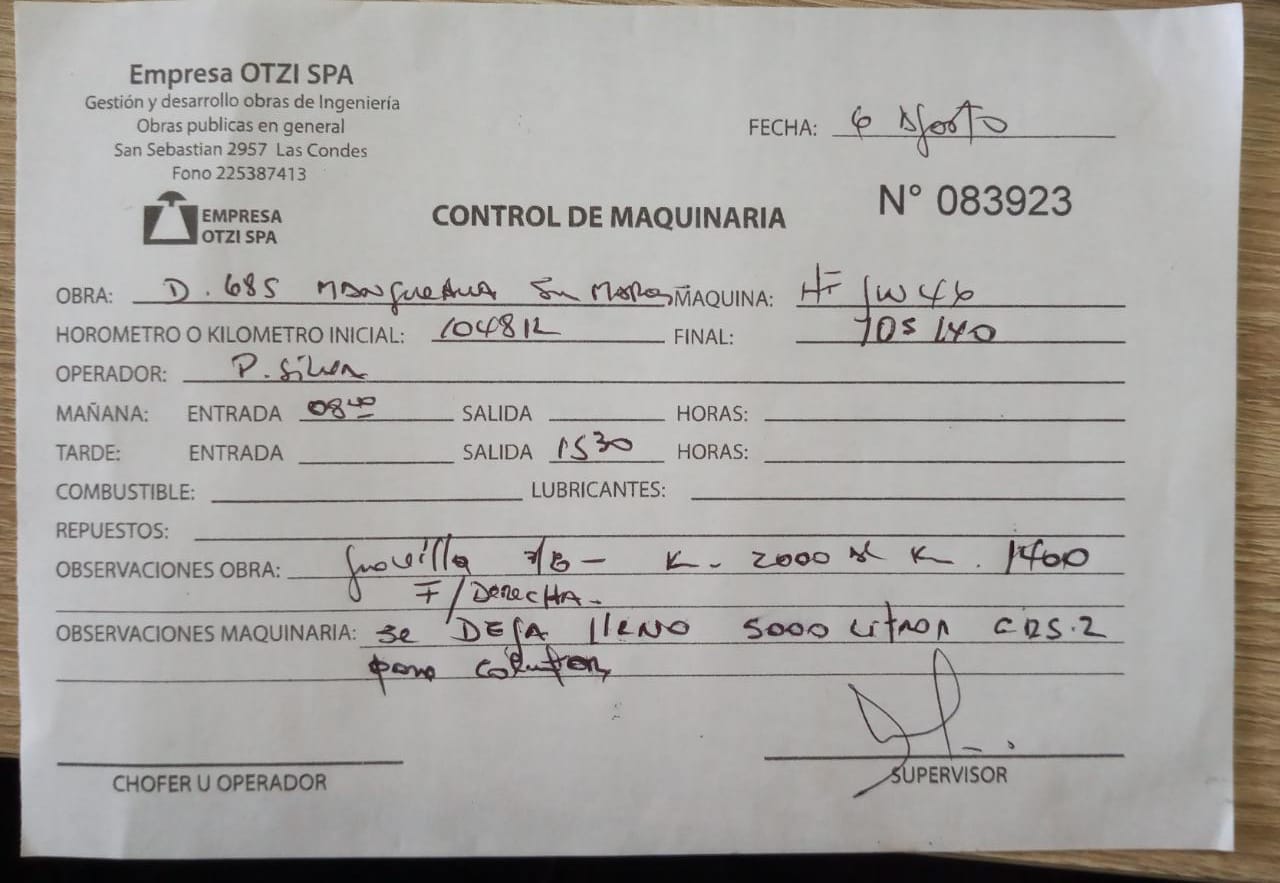 Empresa OTZI SPA
Gestión y desarrollo obras de Ingeniería
Obras publicas en general
San Sebastian 2957 Las Condes
Fono 225387413
EMPRESA
OTZI SPA
FECHA: 6 Agosto
N° 083923
CONTROL DE MAQUINARIA
OBRA: D. 685 MAQUINA:
HOROMETRO O KILOMETRO INICIAL: FINAL: 105140
OPERADOR: P. Silva
MAÑANA: ENTRADA 08 00 SALIDA HORAS:
TARDE: ENTRADA SALIDA 1530 HORAS:
COMBUSTIBLE: LUBRICANTES:
REPUESTOS:
OBSERVACIONES OBRA: Gravilla K. 2000 al K. 1400
F/DERECHA.
OBSERVACIONES MAQUINARIA: SE DEJA LLENO 5000 LITROS CRS.2
para
CHOFER U OPERADOR
SUPERVISOR